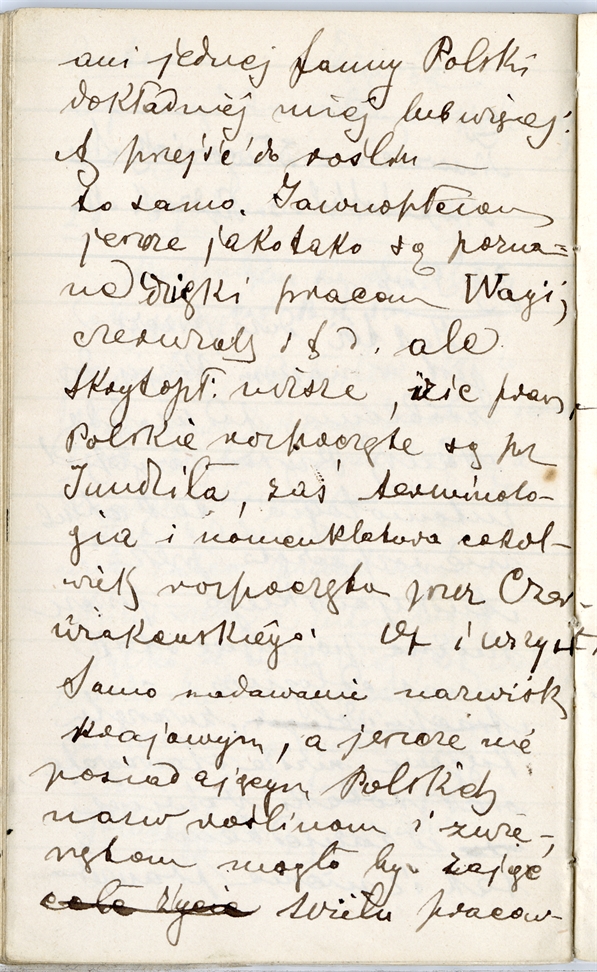 ani jednej fauny Polski
dokładniej mniej lub więcej.
A przejść do roślin —
to samo. Jawnopłciow
jeszcze jako tako są pozna=
ne dzięki pracom Wagi,
i t d. ale
Skrytopł: niższe,
Polskie rozpoczęte są pr
Jundziłła, zaś terminolo-
gia i nomenklatura cokol-
wiek rozpoczęta przez Czer-
wiakowskiego. Ot i wszyst.
Samo nadawanie nazwisk
krajowym, a jeszcze nie
posiadającym Polskich
nazw roślinom i zwie-
rzętom mogło by zająć
całe życie wielu pracow-